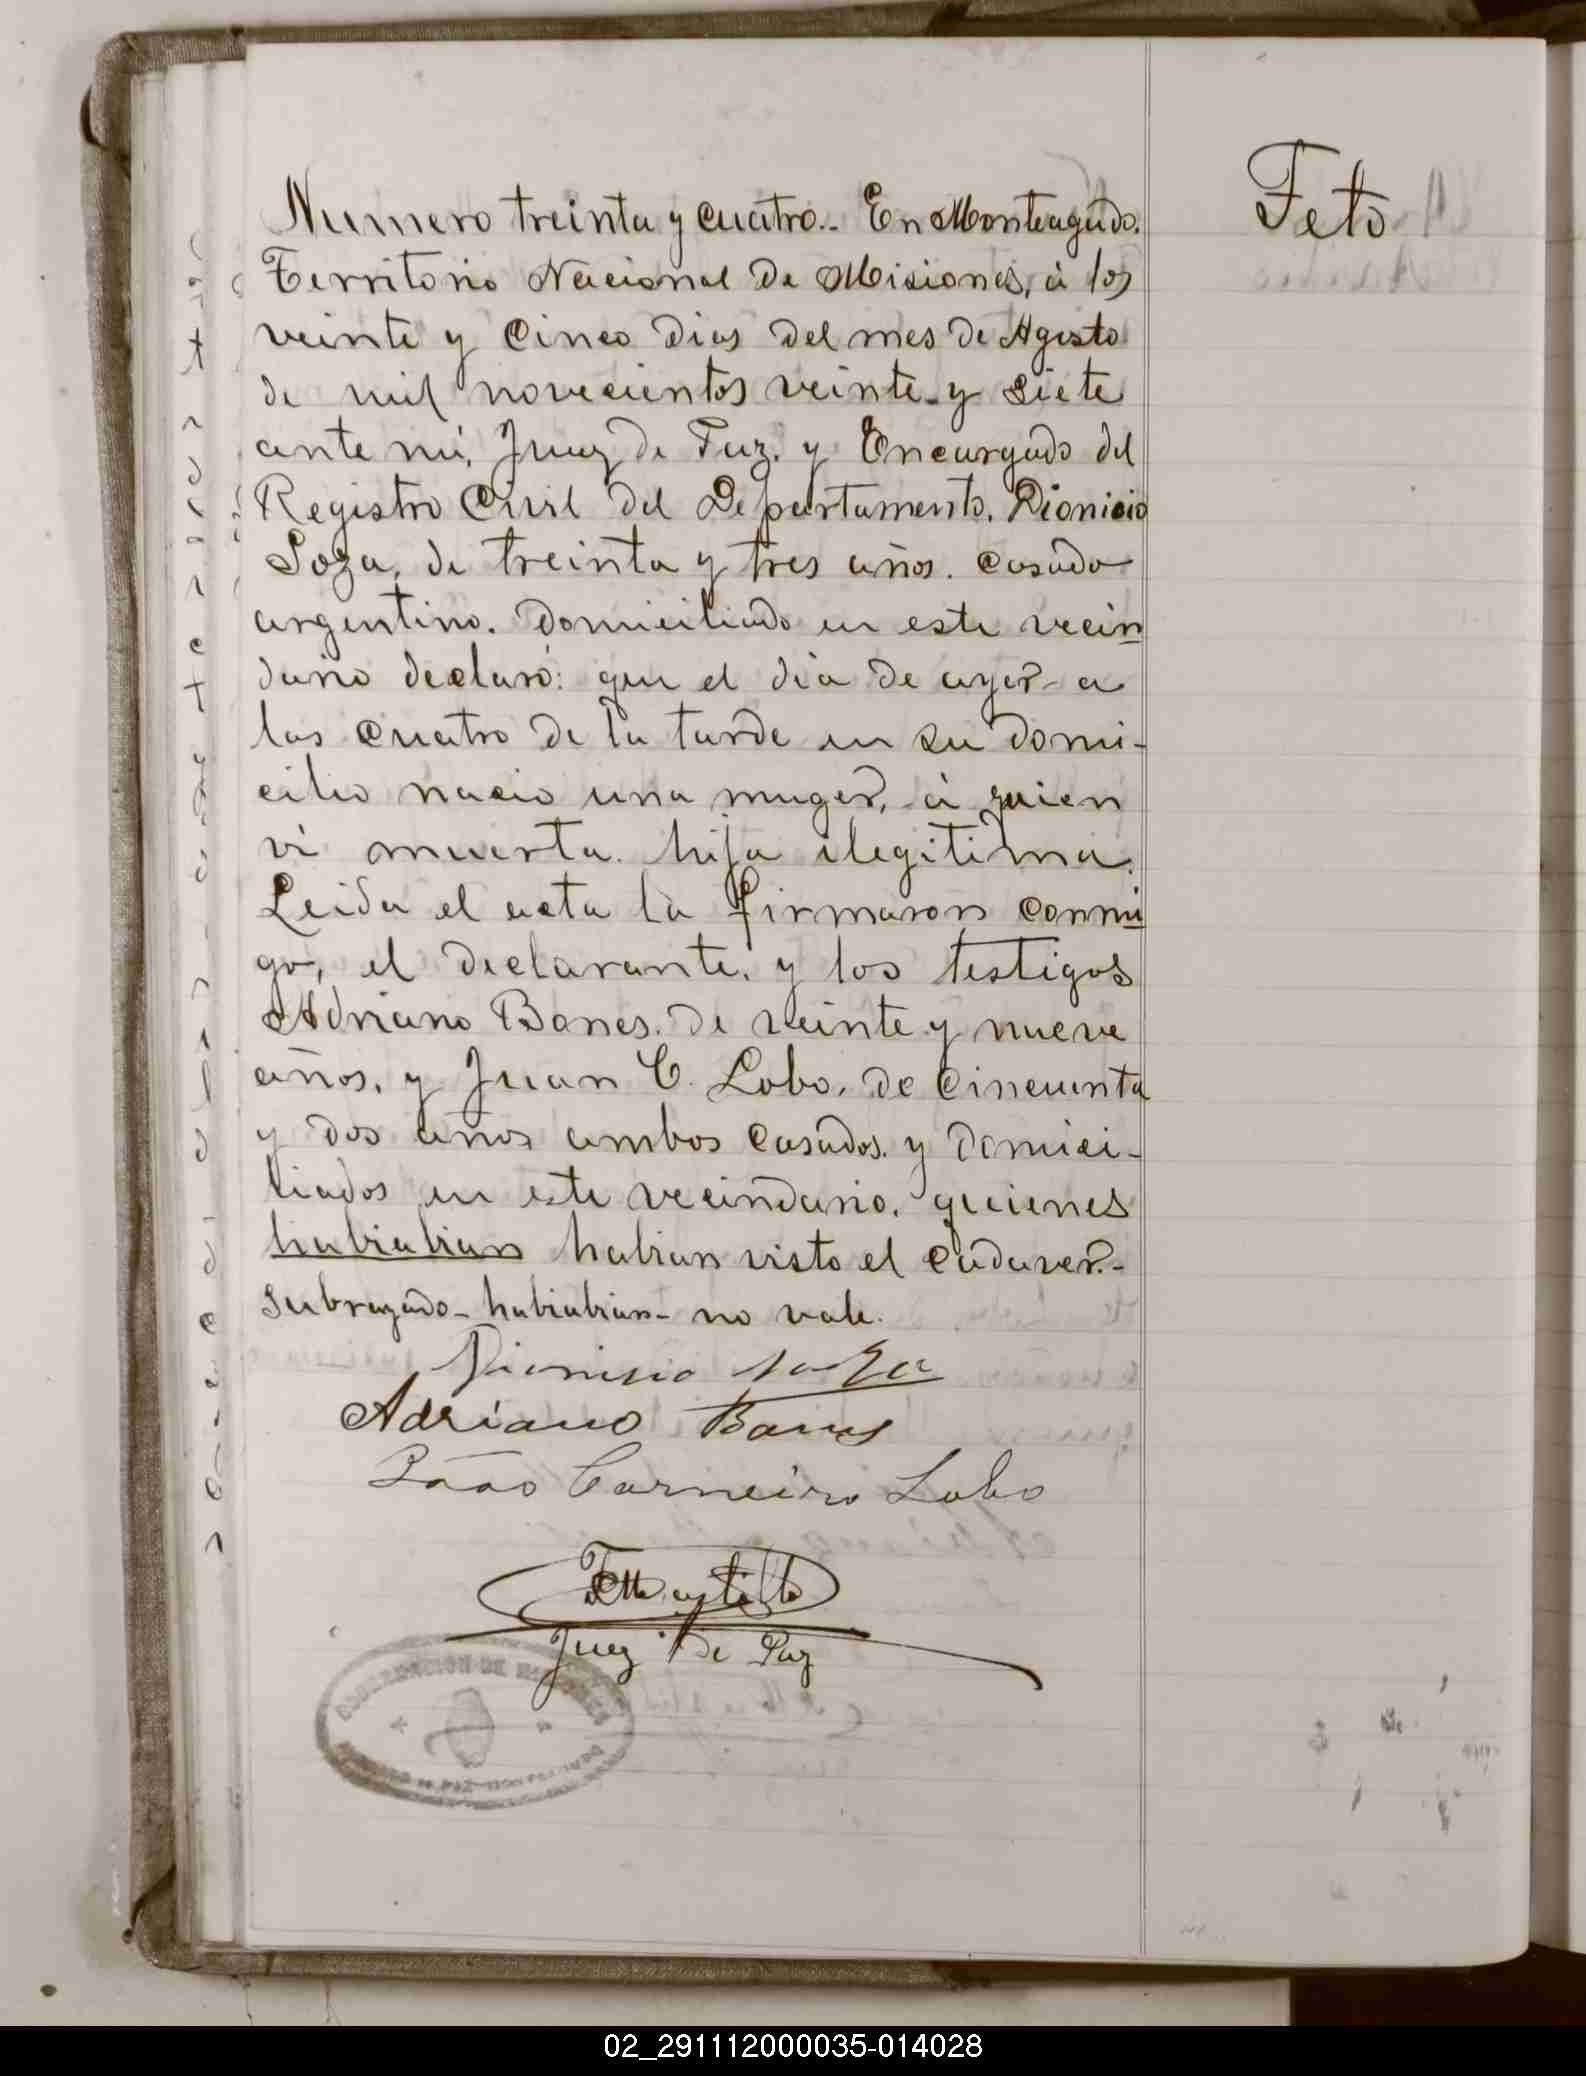 Feto
Numero treinta y cuatro.. En Monteagudo.
Territorio Nacional de Misiones, á los
veinte y cinco dias del mes de Agosto
de mil novecientos veinte y siete
ante mi, Juez de Paz. y Encargado del
Registro Civil del Departamento. Dionicio
Soza, de treinta y tres años. casado
argentino. domiciliado en este vecin
dario declaró: que el dia de ayer a
las cuatro de la tarde en su domi-
cilio nacio una muger, á quien
vi muerta. hija ilegitima.
Leida el acta la firmaron conmi
go, el declarante, y los testigos
Adriano Bones. de veinte y nueve
años, y Juan C. Lobo, de cincuenta
y dos años ambos casados. y domici-
liados en este vecindario. quienes
habiabian habian visto el cadaver.-
subrayado- habiabian- no vale.
Dionisio Soza
Adriano
João Carneiro Lobo
Juez de Paz
GOBERNACION DE MISIONES
02_291112000035-014028